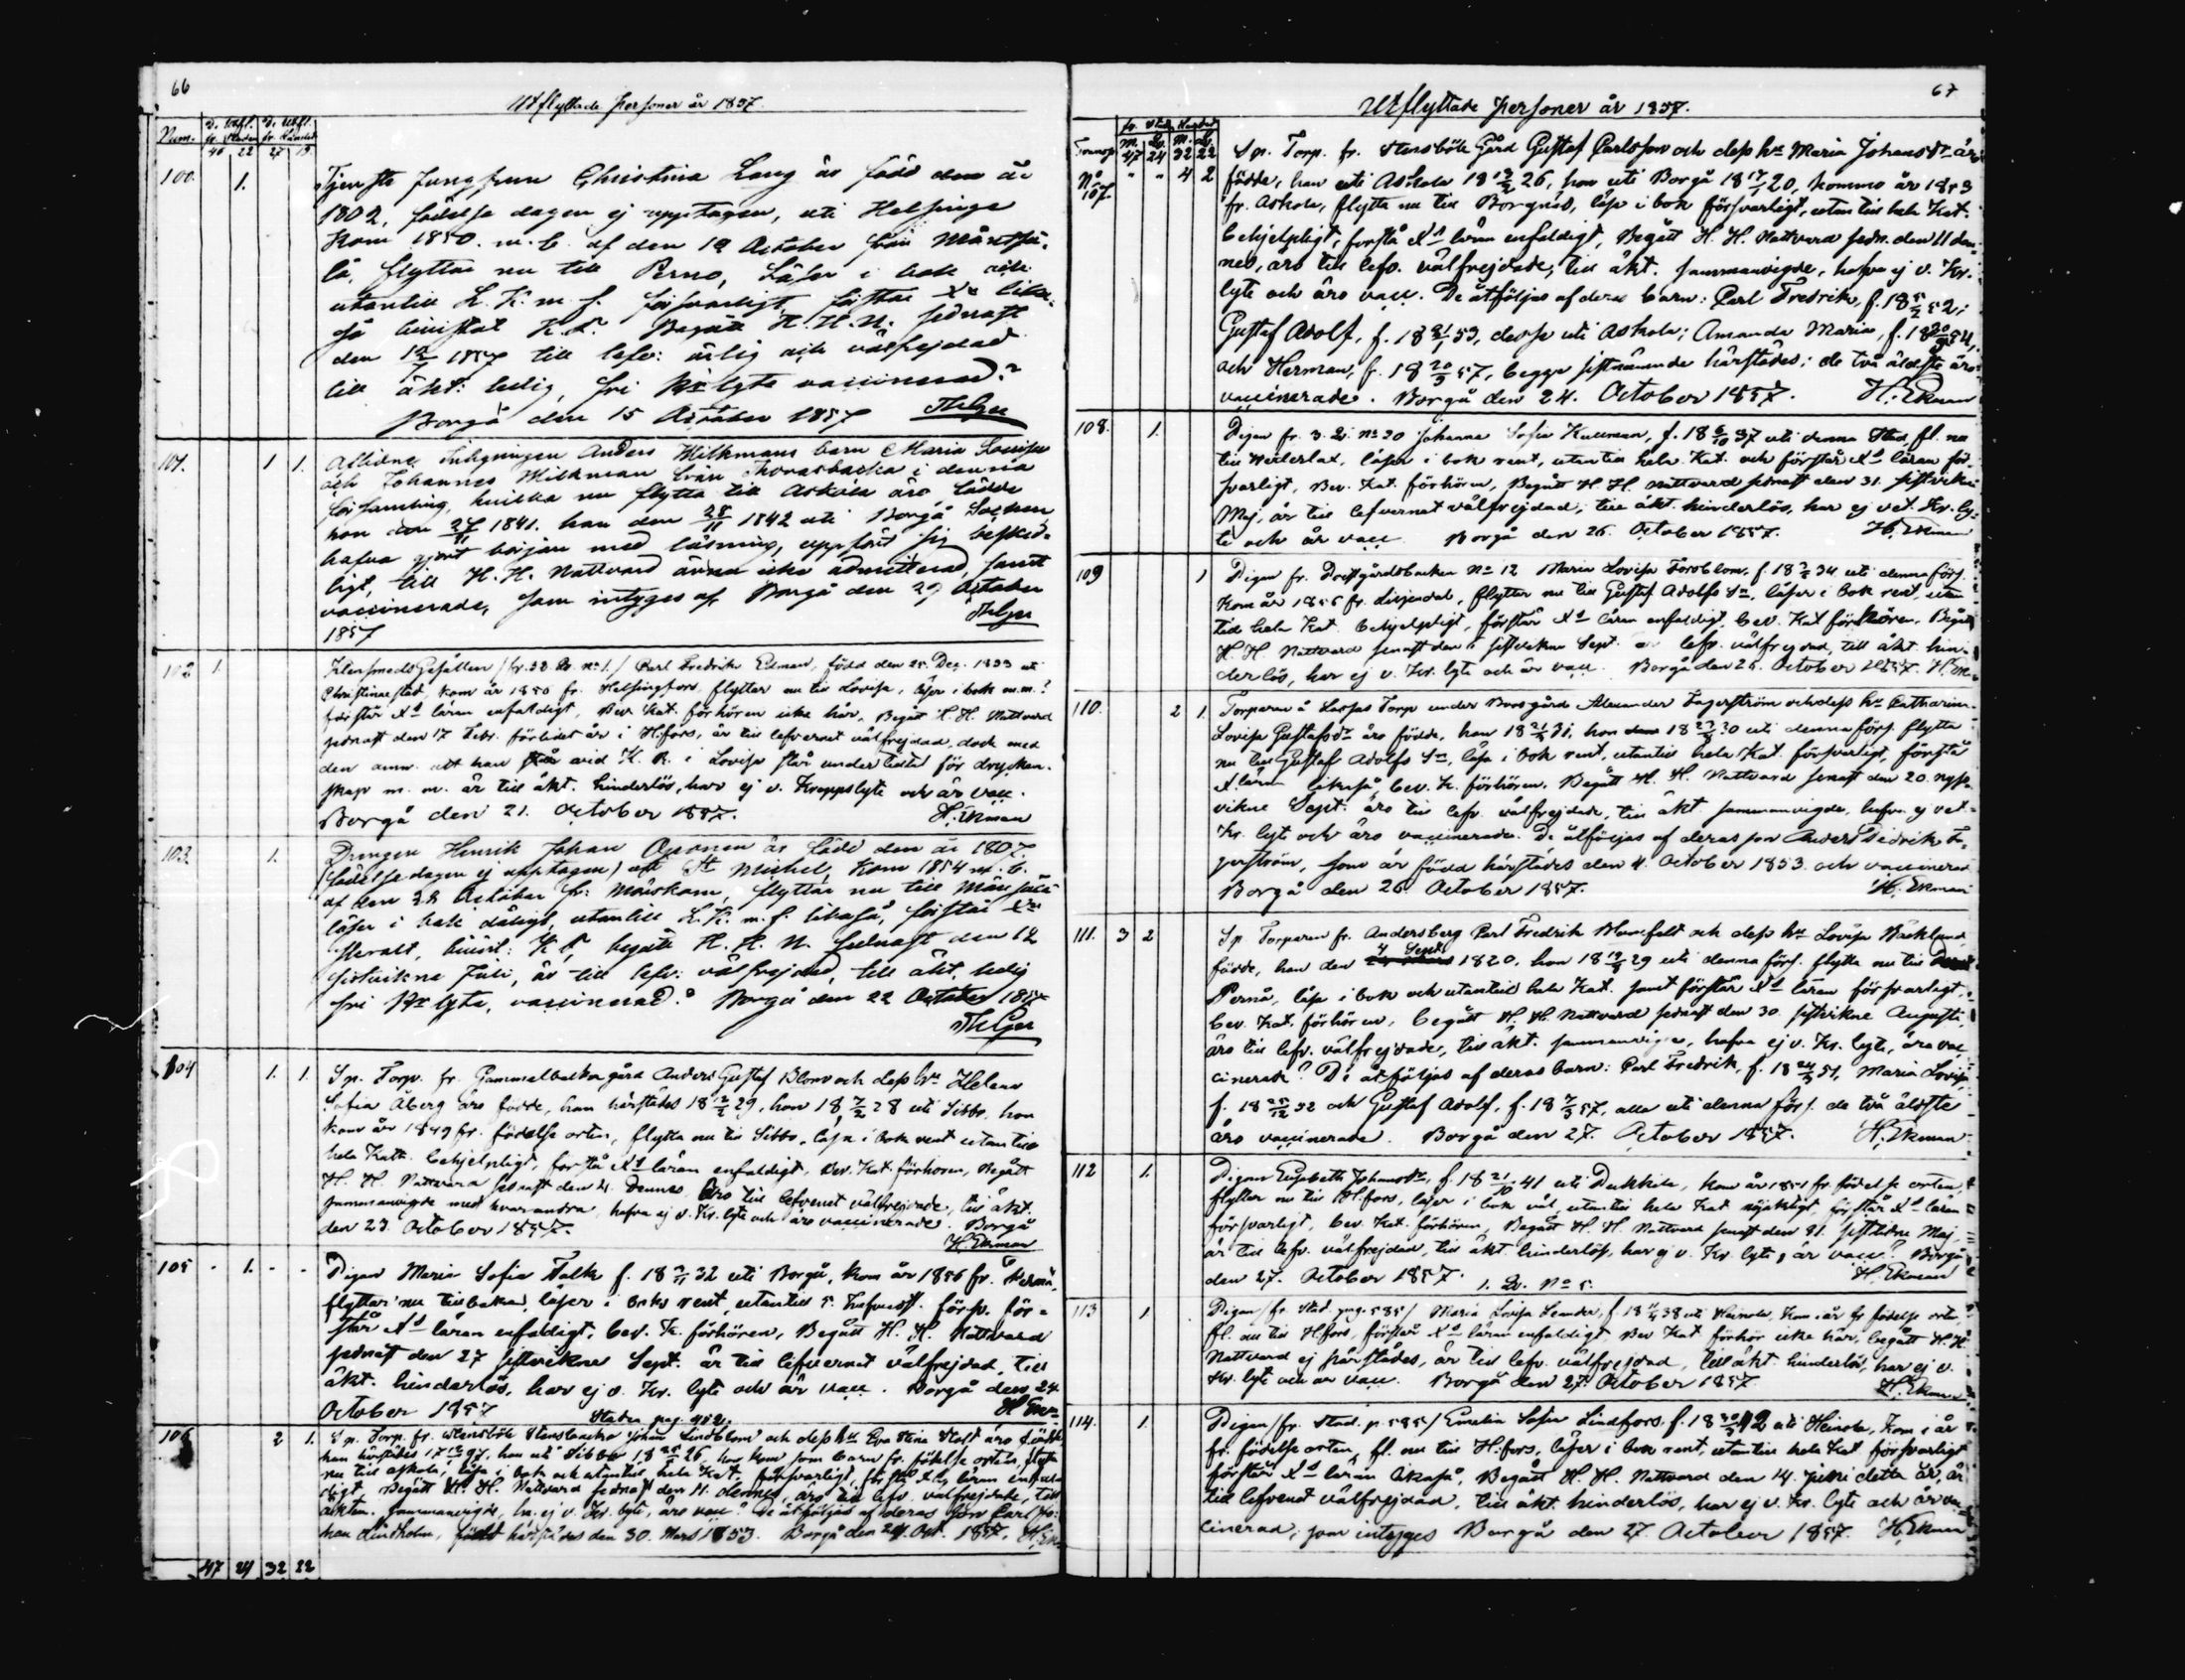 66
Utflyttade Personer år 1857.
Num.
46 22 27 19
100. 1. Tjenste Jungfrun Christina Lang är född den år
1802, födelse dagen ej upptagen, uti Helsinge
Kom 1850 m. b. af den 19 October från Mäntsä-
lä, flyttar nu till Perno, Läser i bok och
utantill L. K. m. f. försvarligt, förstår
så bevistat K. F. Begått H. H. N. sednast
den 1857 till lefv: ärlig och välfrejdad
till äkt: ledig, fri Kr lyte vaccinerad.
Borgå den 15 October 1857
101. 1 1. Aflidne Inhysingen Anders Milkmans barn Maria Lovisa
och Johannes Milkman från Thorasbacka i denna
församling, hvilka nu flytta till Askola äro födde
hon den 27/11 1841. han den 28/11 1842 uti Borgå Socken
hafva gjort början med läsning, uppfört sig besked-
ligt, till H. H. Nattvard ännu icke admitterad, samt
vaccinerade, som intyges af Borgå den 29 October
1857
102 1. Klensmeds Gesällen /fr. 32 Nr. no 1./ Carl Fredrik Edman, född den 25. Dec. 1833 uti
Christinestad, kom år 1850 fr. Helsingfors, flyttar nu till Lovisa, läser i bok m.m.
förstår Xd läran enfaldigt, Bev. Kat. förhören icke här, Begått H. H. Nattvard
sednast den 17 Febr. förlidet år i H:fors, är till lefvernet välfrejdad, dock med
den anm. att han vid K. R. i Lovisa står under tilltal för drycken-
skap m. m. är till äkt. hinderlös, har ej v. Kroppslyte och är vacc.
Borgå den 21. October 1857. H. Ekman
103. 1. Drengen Henrik Johan Oponen är född den år 1807
(födelse dagen ej upptagen) uti St Michel, kom 1854 m: b.
af den 28 October fr: Mörskom, flyttar nu till Mäntsälä
läser i bok dåligt, utantill L. K. m. f. likaså, förstår
, bevist: K F, begått H. H. N. sednast den 12
sistvikne Juli, är till lefv: välfrejdad, till äkt. ledig
fri Kr lyte, vaccinerad. Borgå den 22 October 1857
104 1. 1. Sp. Torp. fr. Gammelbacka gård Anders Gustaf Blom och dess hu Helena
Sofia Åberg äro födde, han härstädes 18 12/2 29, hon 18 7/2 28 uti Sibbo, hon
kom år 1849 fr. födelse orten, flytta nu till Sibbo, läsa i bok rent utantill
hela Katk. behjelpligt, förstå Xd läran enfaldigt, Bev. Kat. förhören, Begått
H. H. Nattvard sednast den 4. dennes. Äro till lefvernet välfrejdade, till äkt.
sammanvigde med hvarandra, hafva ej v. Kr. lyte och äro vaccinerade. Borgå
den 23. October 1857. H. Ekman
105 - 1. - - Pigan Maria Sofia Falk f. 18 32 uti Borgå, kom år 1856 fr.
flyttar nu tillbaka, läser i bok rent, utantill 5. hufvudst. försv. för-
står Xd läran enfaldigt, bev. K. förhören, Begått H. H. Nattvard
sednast den 27 sistvikne Sept. är till lefvernet välfrejdad, till
äkt. hinderlös, har ej v. Kr. lyte och är vacc. Borgå den 24.
October 1857
106 2 1. Sp. Torp. fr. Stensböle Stensbacka Johan Lindholm och dess hu Eva Stina äro födde
han härstädes, hon uti Sibbo, hon kom som barn fr. födelse orten, flytta
nu till Askola, läsa i bok och utantill hela Kat. försvarligt, förstå Xd läran enfal-
digt, Begått H. H. Nattvard sednast den 11. dennes, äro till lefv. välfrejdade, till
äkten. sammanvigde, ha ej v. Kr. lyte, äro vacc. De åtföljas af deras son Carl Jo-
han Lindholm, född härstädes den 30. Mars 1853. Borgå den 24. Oct. 1857.
47 24 32 22
67
Utflyttade Personer år 1857.
Transp. 47 24 32 22
No 107. " " 4 2 Sp. Torp. fr. Stensböle Gård Gustaf Carlsson och dess hu Maria Johansdr äro
födde, han uti Askola 18 26, hon uti Borgå 18 20, kommo år 1853
fr. Askola, flytta nu till Borgnäs, läsa i bok försvarligt, utantill hela Kat.
behjelpligt, förstå Xd läran enfaldigt, Begått H. H. Nattvard sedn. den 11 den-
nes, äro till lefv. välfrejdade, till äkt. sammanvigde, hafva ej v. Kr.
lyte och äro vacc. De åtföljas af deras barn: Carl Fredrik, f. 18 52;
Gustaf Adolf, f. 18 21/1 53, desse uti Askola; Amanda Maria, f. 18 54,
och Herman, f. 18 20/3 57, begge sistnämnde härstädes; de två äldste äro
vaccinerade. Borgå den 24. October 1857. H. Ekman
108. 1. Pigan fr. 3. Q. No 20 Johanna Sofia Kullman, f. 18 6/10 37 uti denna Stad, fl. nu
till Wederlax, läser i bok rent, utantill hela Kat. och förstår Xd läran för-
svarligt, Bev. Kat. förhören, Begått H. H. Nattvard sednast den 31. sistvikne
Maj, är till lefvernet välfrejdad, till äkt. hinderlös, har ej vet. Kr. ly-
te och är vacc. Borgå den 26. October 1857. H. Ekman
109 1 Pigan fr. Prestgårdsbacken No 12 Maria Lovisa Forsblom, f. 18 34 uti denna förs.
Kom år 1856 fr. Liljendal, flyttar nu till Gustaf Adolfs Sn, läser i bok rent, utan
till hela Kat. behjelpligt, förstår Xd läran enfaldigt, bev. Kat förhören, Begått
H. H. Nattvard senast den 6 sistvikne Sept. lefv. välfrejdad, till äkt. hin-
derlös, har ej v. Kr. lyte och är vacc. Borgå den 26. October 1857.
110. 2 1. Torparen å Lassas Torp under Boe gård Alexander Fagerström och dess hu Catharina
Lovisa Gustafsdr äro födde, han 18 21/3 31, hon 18 30 uti denna förs. flytta
nu till Gustaf Adolfs Sn, läsa i bok rent, utantill hela Kat. försvarligt, förstå
X läran likaså, bev. K. förhören, Begått H. H. Nattvard senast den 20. nyss-
vikne Sept. äro till lefv. välfrejdade, till äkt sammanvigde, hafva ej vet.
Kr. lyt och äro vaccinerade. De åtföljas af deras son Anders Fredrik Fa-
gerström, som är född härstädes den 4. October 1853 och vaccinerad
Borgå den 26. October 1857. H. Ekman
111. 3 2 Sp. Torparen fr. Andersberg Carl Fredrik Blomfelt och dess hu Lovisa Bäcklund,
födde, han den 4 Sept. 1820, hon 18 29 uti denna förs. flytta nu till
Pernå, läsa i bok och utantill hela Kat. samt förstår Xd läran försvarligt,
bev. Kat. förhören, begått H. H. Nattvard sednast den 30. sistvikne Augusti,
äro till lefv. välfrejdade, till äkt. sammanvigde, hafva ej v. Kr. lyte, äro vac-
cinerade. De åtföljas af deras barn: Carl Fredrik, f. 18 51, Maria Lovisa,
f. 18 25/12 52 och Gustaf Adolf, f. 18 57, alla uti denna förs. de två äldste
äro vaccinerade. Borgå den 27. October 1857. H. Ekman
112 1. Pigan Elisabeth Johansdr, f. 18 21/10 41 uti Pukkila, kom år 1851 fr. födelse orten,
flyttar nu till H:fors, läser i bok väl, utantill hela Kat nöjaktigt, förstår Xd läran
försvarligt, bev. Kat. förhören, Begått H. H. Nattvard senast den 31. sistvikne Maj,
är till lefv. välfrejdad, till äkt. hinderlös, har ej v. Kr. lyte, är vacc. Borgå
den 27. October 1857. H. Ekman
1. Q. No 5.
113 1 Pigan /fr. Stad. pag. 585/ Maria Lovisa Leander, f. 18 38 uti Heinola, Kom i år fr födelse orten,
fl. nu till H:fors, förstår Xd läran enfaldigt, Bev Kat. förhör icke här, begått H. H.
Nattvard ej härstädes, är till lefv. välfrejdad, till äkt. hinderlös, har ej v.
Kr. lyte och är vacc. Borgå den 27. October 1857. H. Ekman
114. 1. Pigan /fr. Stad. p. 585/ Emelia Sofia Lindfors, f. 18 42 uti Heinola, Kom i år
fr. födelse orten, fl. nu till H:fors, läser i bok rent, utantill hela Kat försvarligt
förstår Xd läran likaså, Begått H. H. Nattvard den 14. Juni detta år, är
till lefvernet välfrejdad, till äkt. hinderlös, har ej v. Kr. lyte och är vac-
cinerad, som intyges Borgå den 27 October 1857. H. Ekman